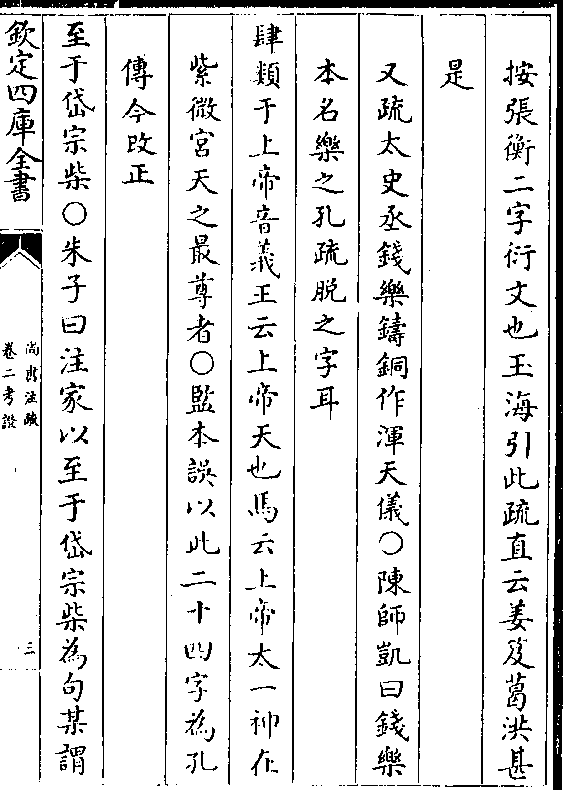 按張衡二字衍文也玉海引此疏直云姜岌葛洪甚
是
又疏太史丞錢樂鑄銅作渾天儀○陳師凱曰錢樂
本名樂之孔疏脱之字耳
肆類于上帝音義王云上帝天也馬云上帝太一神在
紫微宮天之最尊者○監本誤以此二十四字為孔
傳今改正
至于岱宗柴○朱子曰注家以至于岱宗柴為句某謂
欽定四庫全書
尚書注疏
卷二考證
三